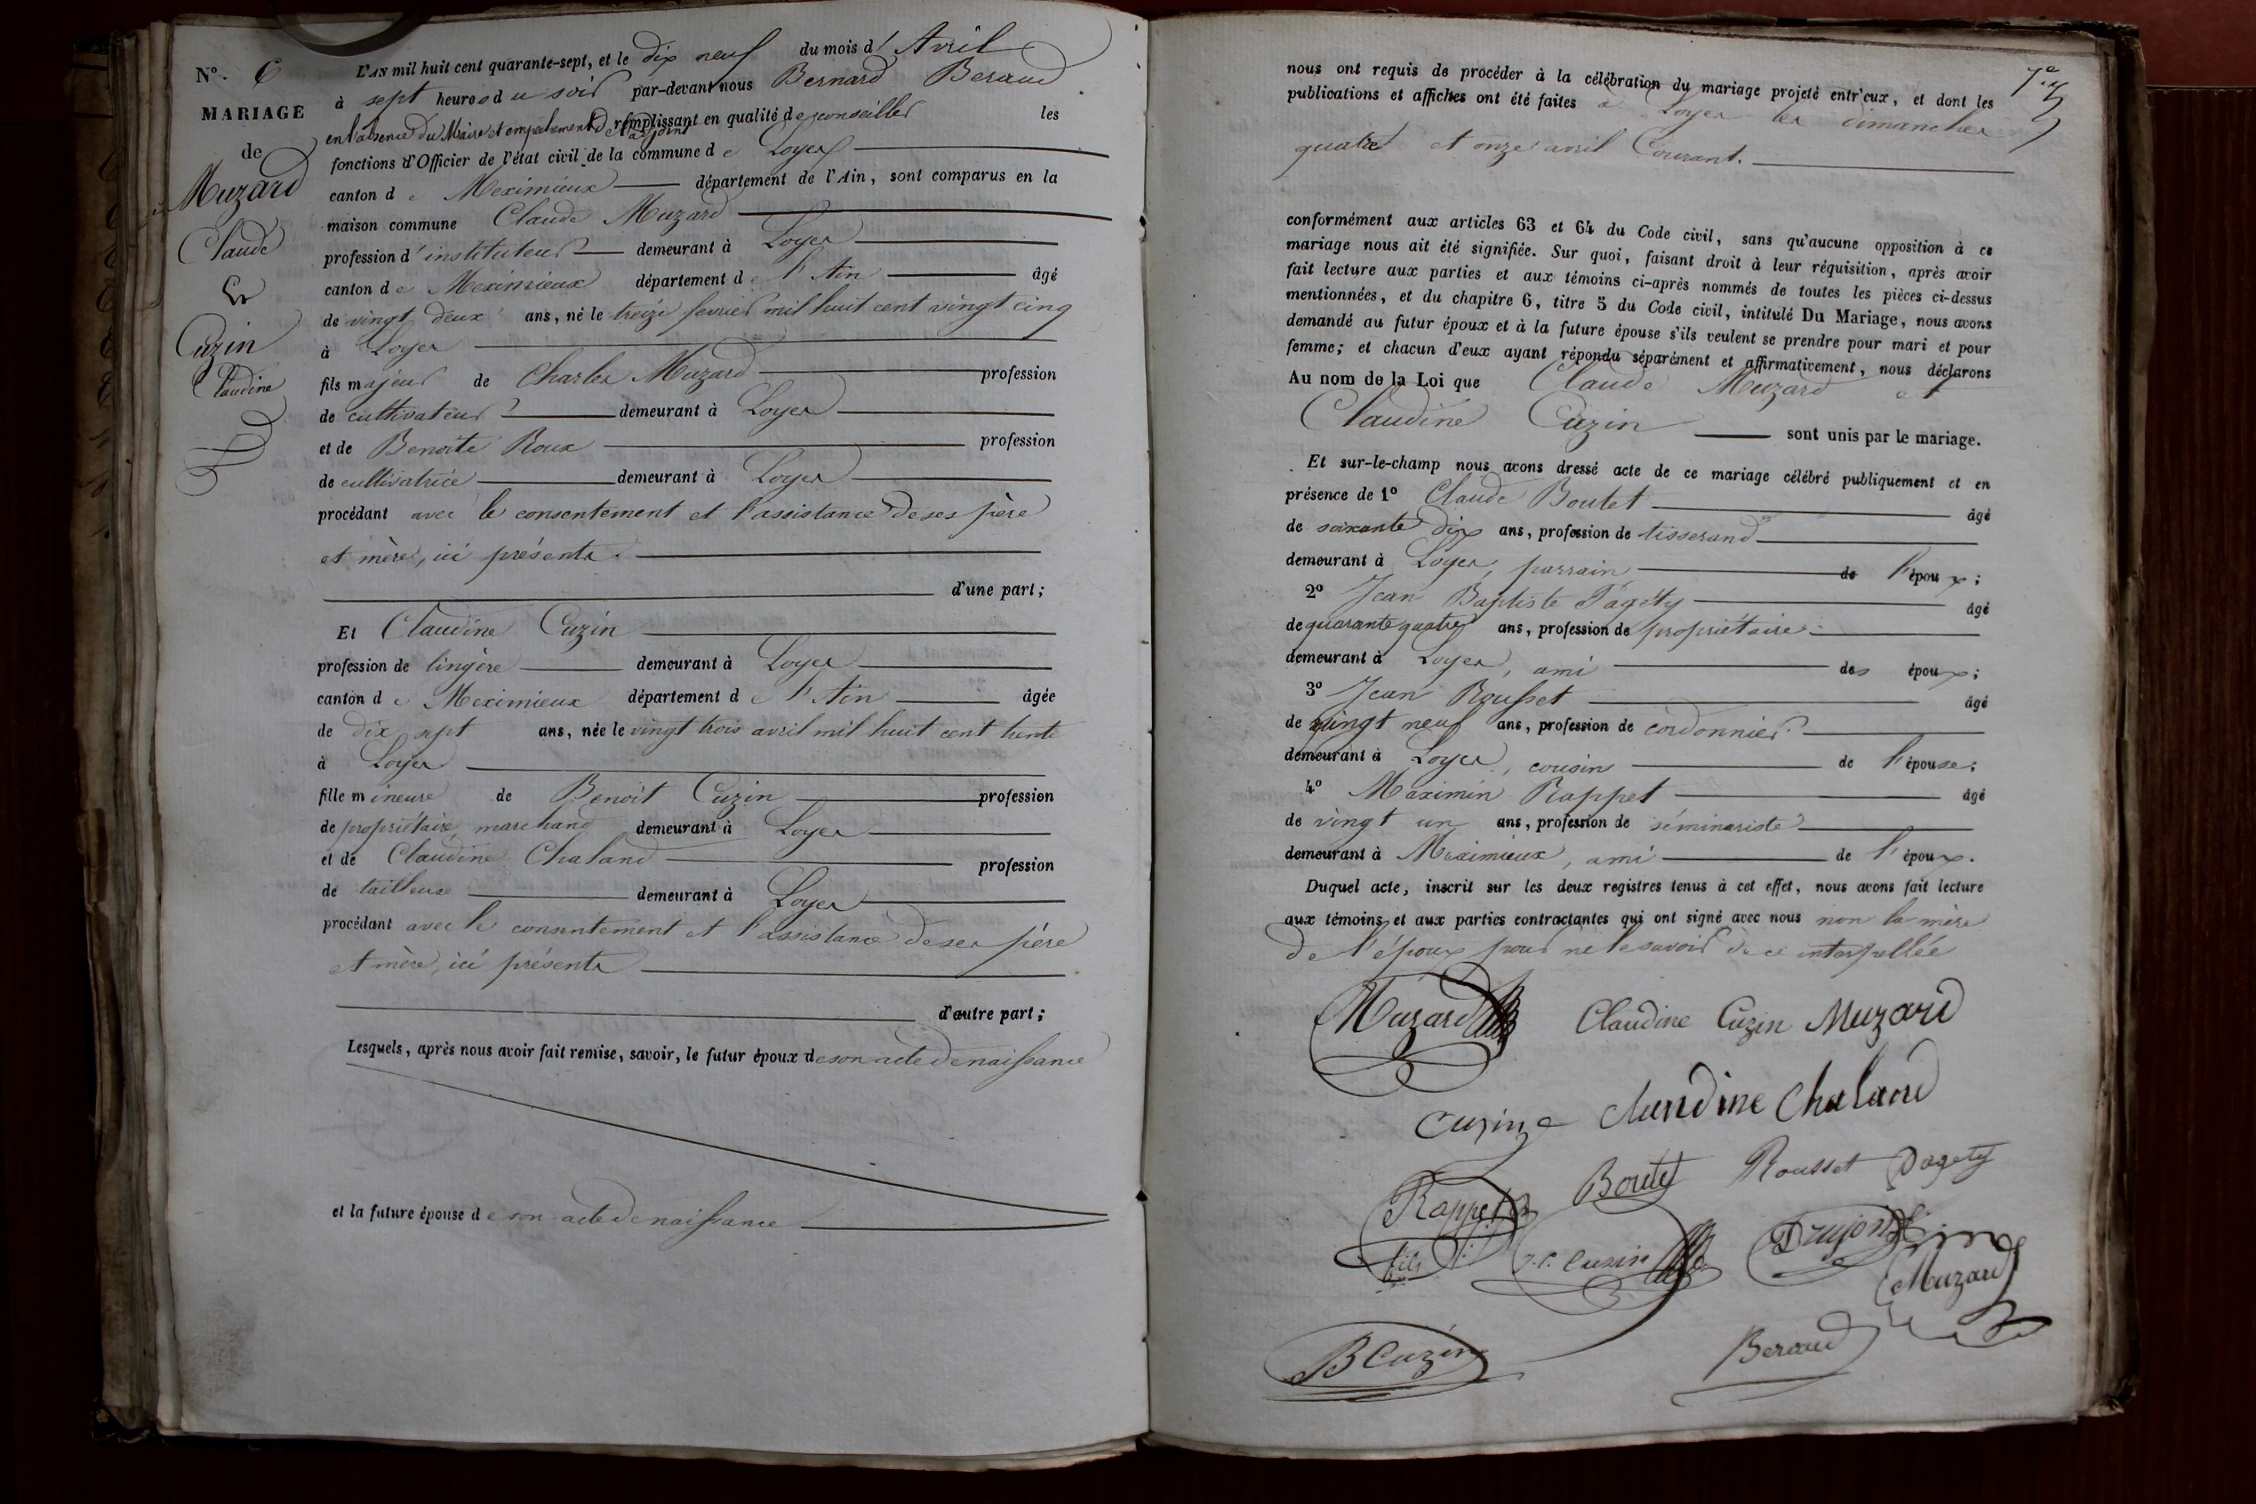 N.º 6
MARIAGE
de
Muzard
Claude
et
Cuzin
Claudine
L'AN mil huit cent quarante-sept, et le dix neuf du mois d'Avril
à sept heures du soir par-devant nous Bernard Beraud
en l'absence du Maire et empêchement de l'adjoint remplissant en qualité de conseiller les
fonctions d'Officier de l'état civil de la commune de Loyes
canton de Meximieux département de l'Ain, sont comparus en la
maison commune Claude Muzard
profession d'instituteur demeurant à Loyes
canton de Meximieux département de l'Ain âgé
de vingt deux ans, né le treize fevrier mil huit cent vingt cinq
à Loyes
fils majeur de Charles Muzard profession
de cultivateur demeurant à Loyes
et de Benoite Roux profession
de cultivatrice demeurant à Loyes
procédant avec le consentement et l'assistance de ses père
et mère, ici présents.
d'une part;
Et Claudine Cuzin
profession de lingère demeurant à Loyes
canton de Meximieux département de l'Ain âgée
de dix sept ans, née le vingt trois avril mil huit cent trente
à Loyes
fille mineure de Benoit Cuzin profession
de propriétaire, marchand demeurant à Loyes
et de Claudine Chaland profession
de tailleuse demeurant à Loyes
procédant avec le consentement et l'assistance de ses père
et mère, ici présents
d'autre part;
Lesquels, après nous avoir fait remise, savoir, le futur époux de son acte de naissance
et la future épouse de son acte de naissance
nous ont requis de procéder à la célébration du mariage projeté entr'eux, et dont les
publications et affiches ont été faites à Loyes les dimanches
quatre et onze avril Courant.
conformément aux articles 63 et 64 du Code civil, sans qu'aucune opposition à ce
mariage nous ait été signifiée. Sur quoi, faisant droit à leur réquisition, après avoir
fait lecture aux parties et aux témoins ci-après nommés de toutes les pièces ci-dessus
mentionnées, et du chapitre 6, titre 5 du Code civil, intitulé Du Mariage, nous avons
demandé au futur époux et à la future épouse s'ils veulent se prendre pour mari et pour
femme; et chacun d'eux ayant répondu séparément et affirmativement, nous déclarons
Au nom de la Loi que Claude Muzard et
Claudine Cuzin sont unis par le mariage.
Et sur-le-champ nous avons dressé acte de ce mariage célébré publiquement et en
présence de 1º Claude Boutet âgé
de soixante dix ans, profession de tisserand
demeurant à Loyes, parrain de l'époux;
2º Jean Baptiste Pagéty âgé
de quarante quatre ans, profession de propriétaire
demeurant à Loyes, ami des époux;
3º Jean Rousset âgé
de vingt neuf ans, profession de cordonnier
demeurant à Loyes, cousin de l'épouse;
4º Maximin Rappet âgé
de vingt un ans, profession de séminariste
demeurant à Meximieux, ami de l'époux.
Duquel acte, inscrit sur les deux registres tenus à cet effet, nous avons fait lecture
aux témoins et aux parties contractantes qui ont signé avec nous non la mère
de l'époux pour ne le savoir de ce interpellée
Muzard Claudine Cuzin Muzard
Cuzin Claudine Chaland
Rappet fils Boutet Rousset Pagety
J. C. Cuzin Drujon
Muzard
B Cuzin Beraud